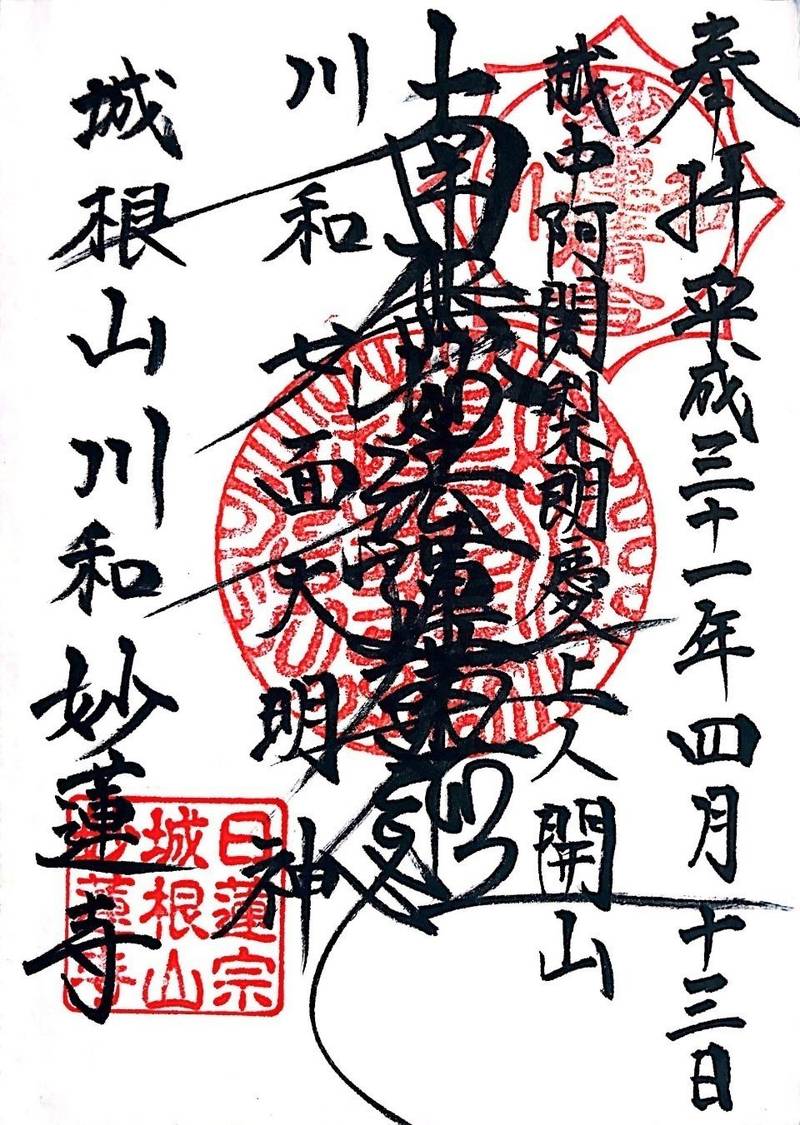 奉拝 平成三十一年四月十三日
越中阿闍梨朗慶上人開山
南無妙法蓮華経
川和 女面大明神
城根山 川和 妙蓮寺
日蓮宗
城根山
妙蓮寺